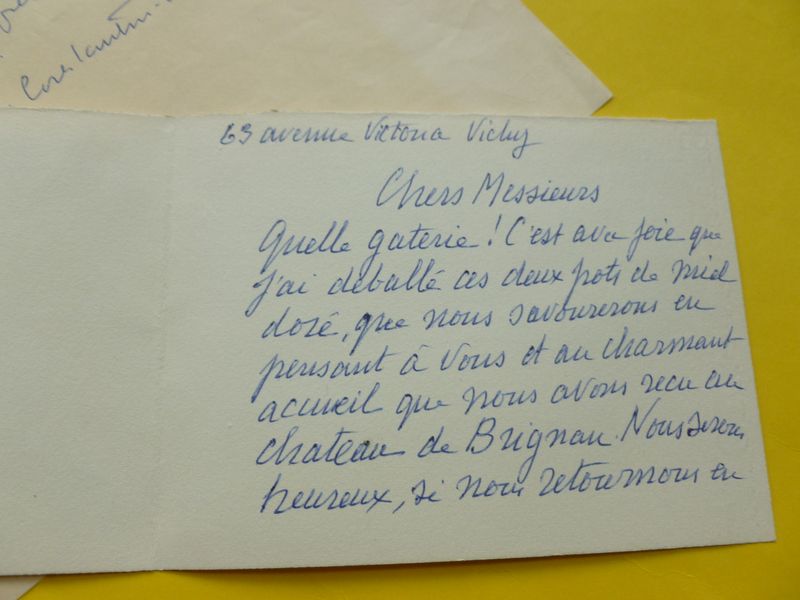 Constantin
63 avenue Victoria Vichy
Chers Messieurs
Quelle gaterie! C'est avec joie que
j'ai déballé ces deux pots de miel
doré, que nous savourerons en
pensant à Vous et au charmant
accueil que nous avons recu au
chateau de Brignan. Nous serons
heureux, si nous retournons en